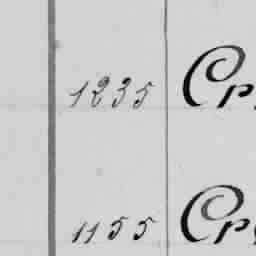 1235 Cr
1155 Cr